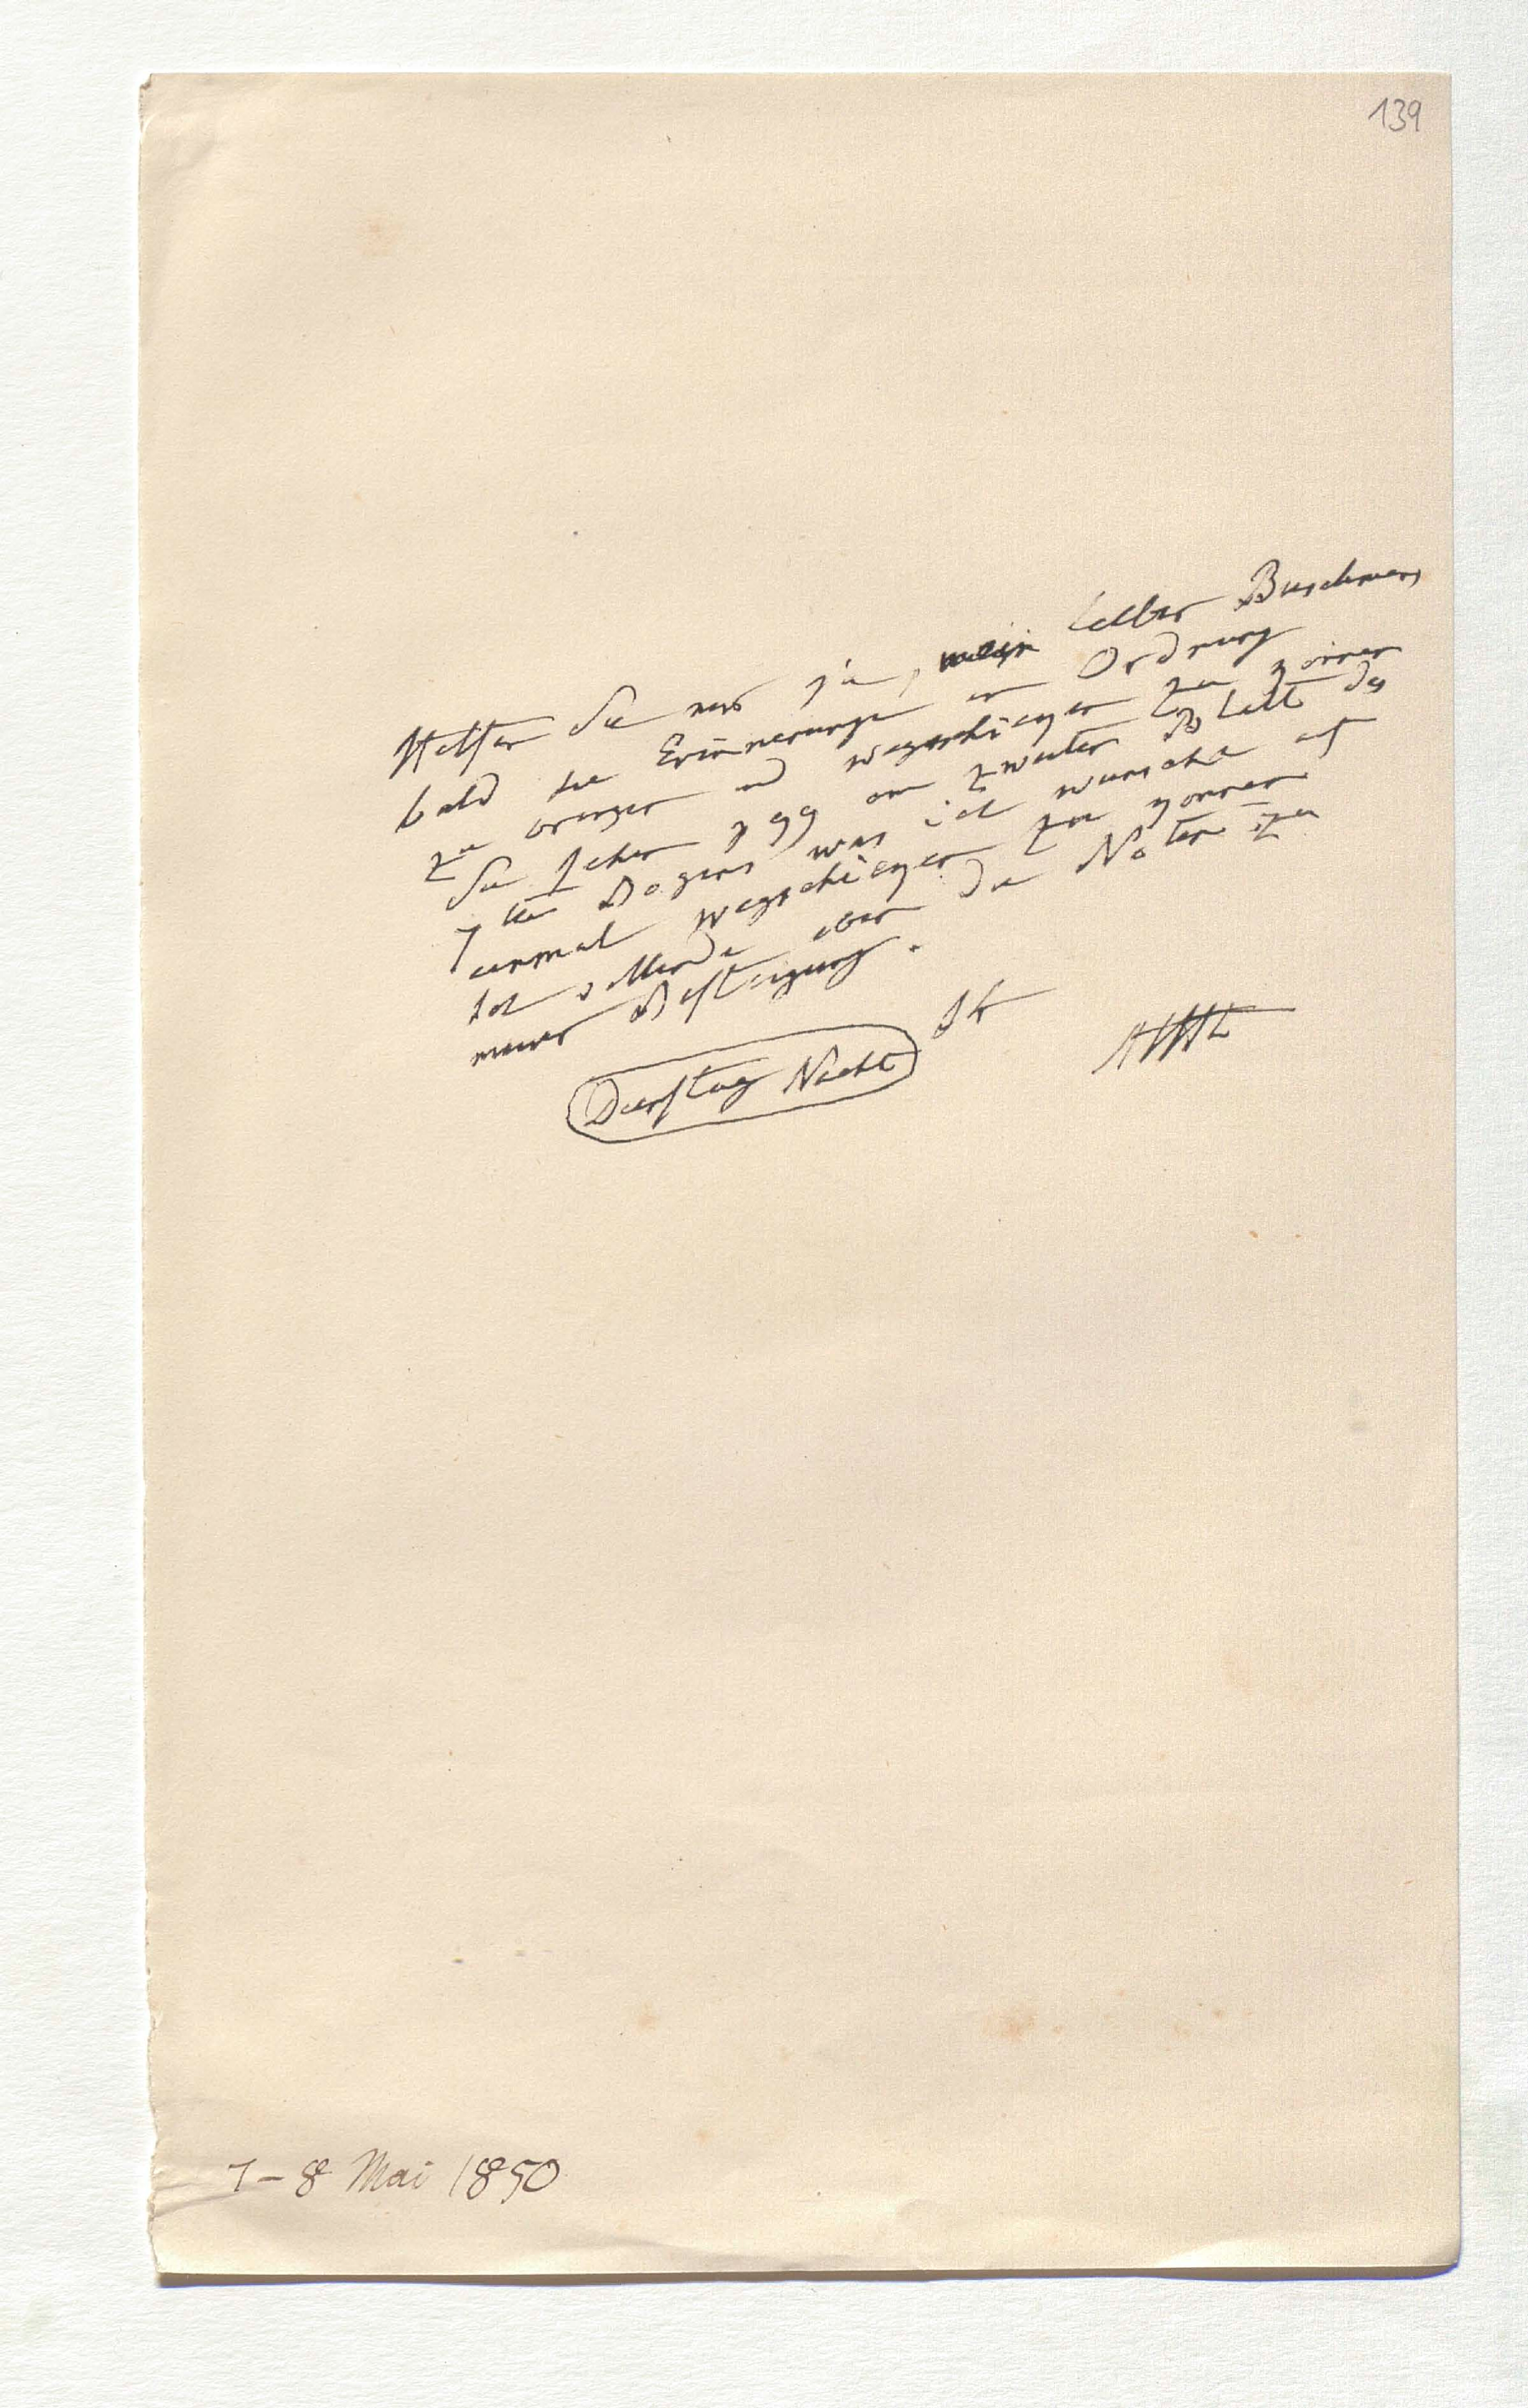 139
Helfen Sie mir ja, mein lieber Buschmann
bald die Erinnerungen in Ordnung
zu bringen und wegschicken zu können
Sie sehen p 99 am zweiten Blatt des
7ten Bogens was ich wünsche auf
einmal wegschicken zu können
Ich sende aber die Noten zu
meiner Besteigung.
Ihr
AHt
Dienstag Nacht
7–8 Mai 1850